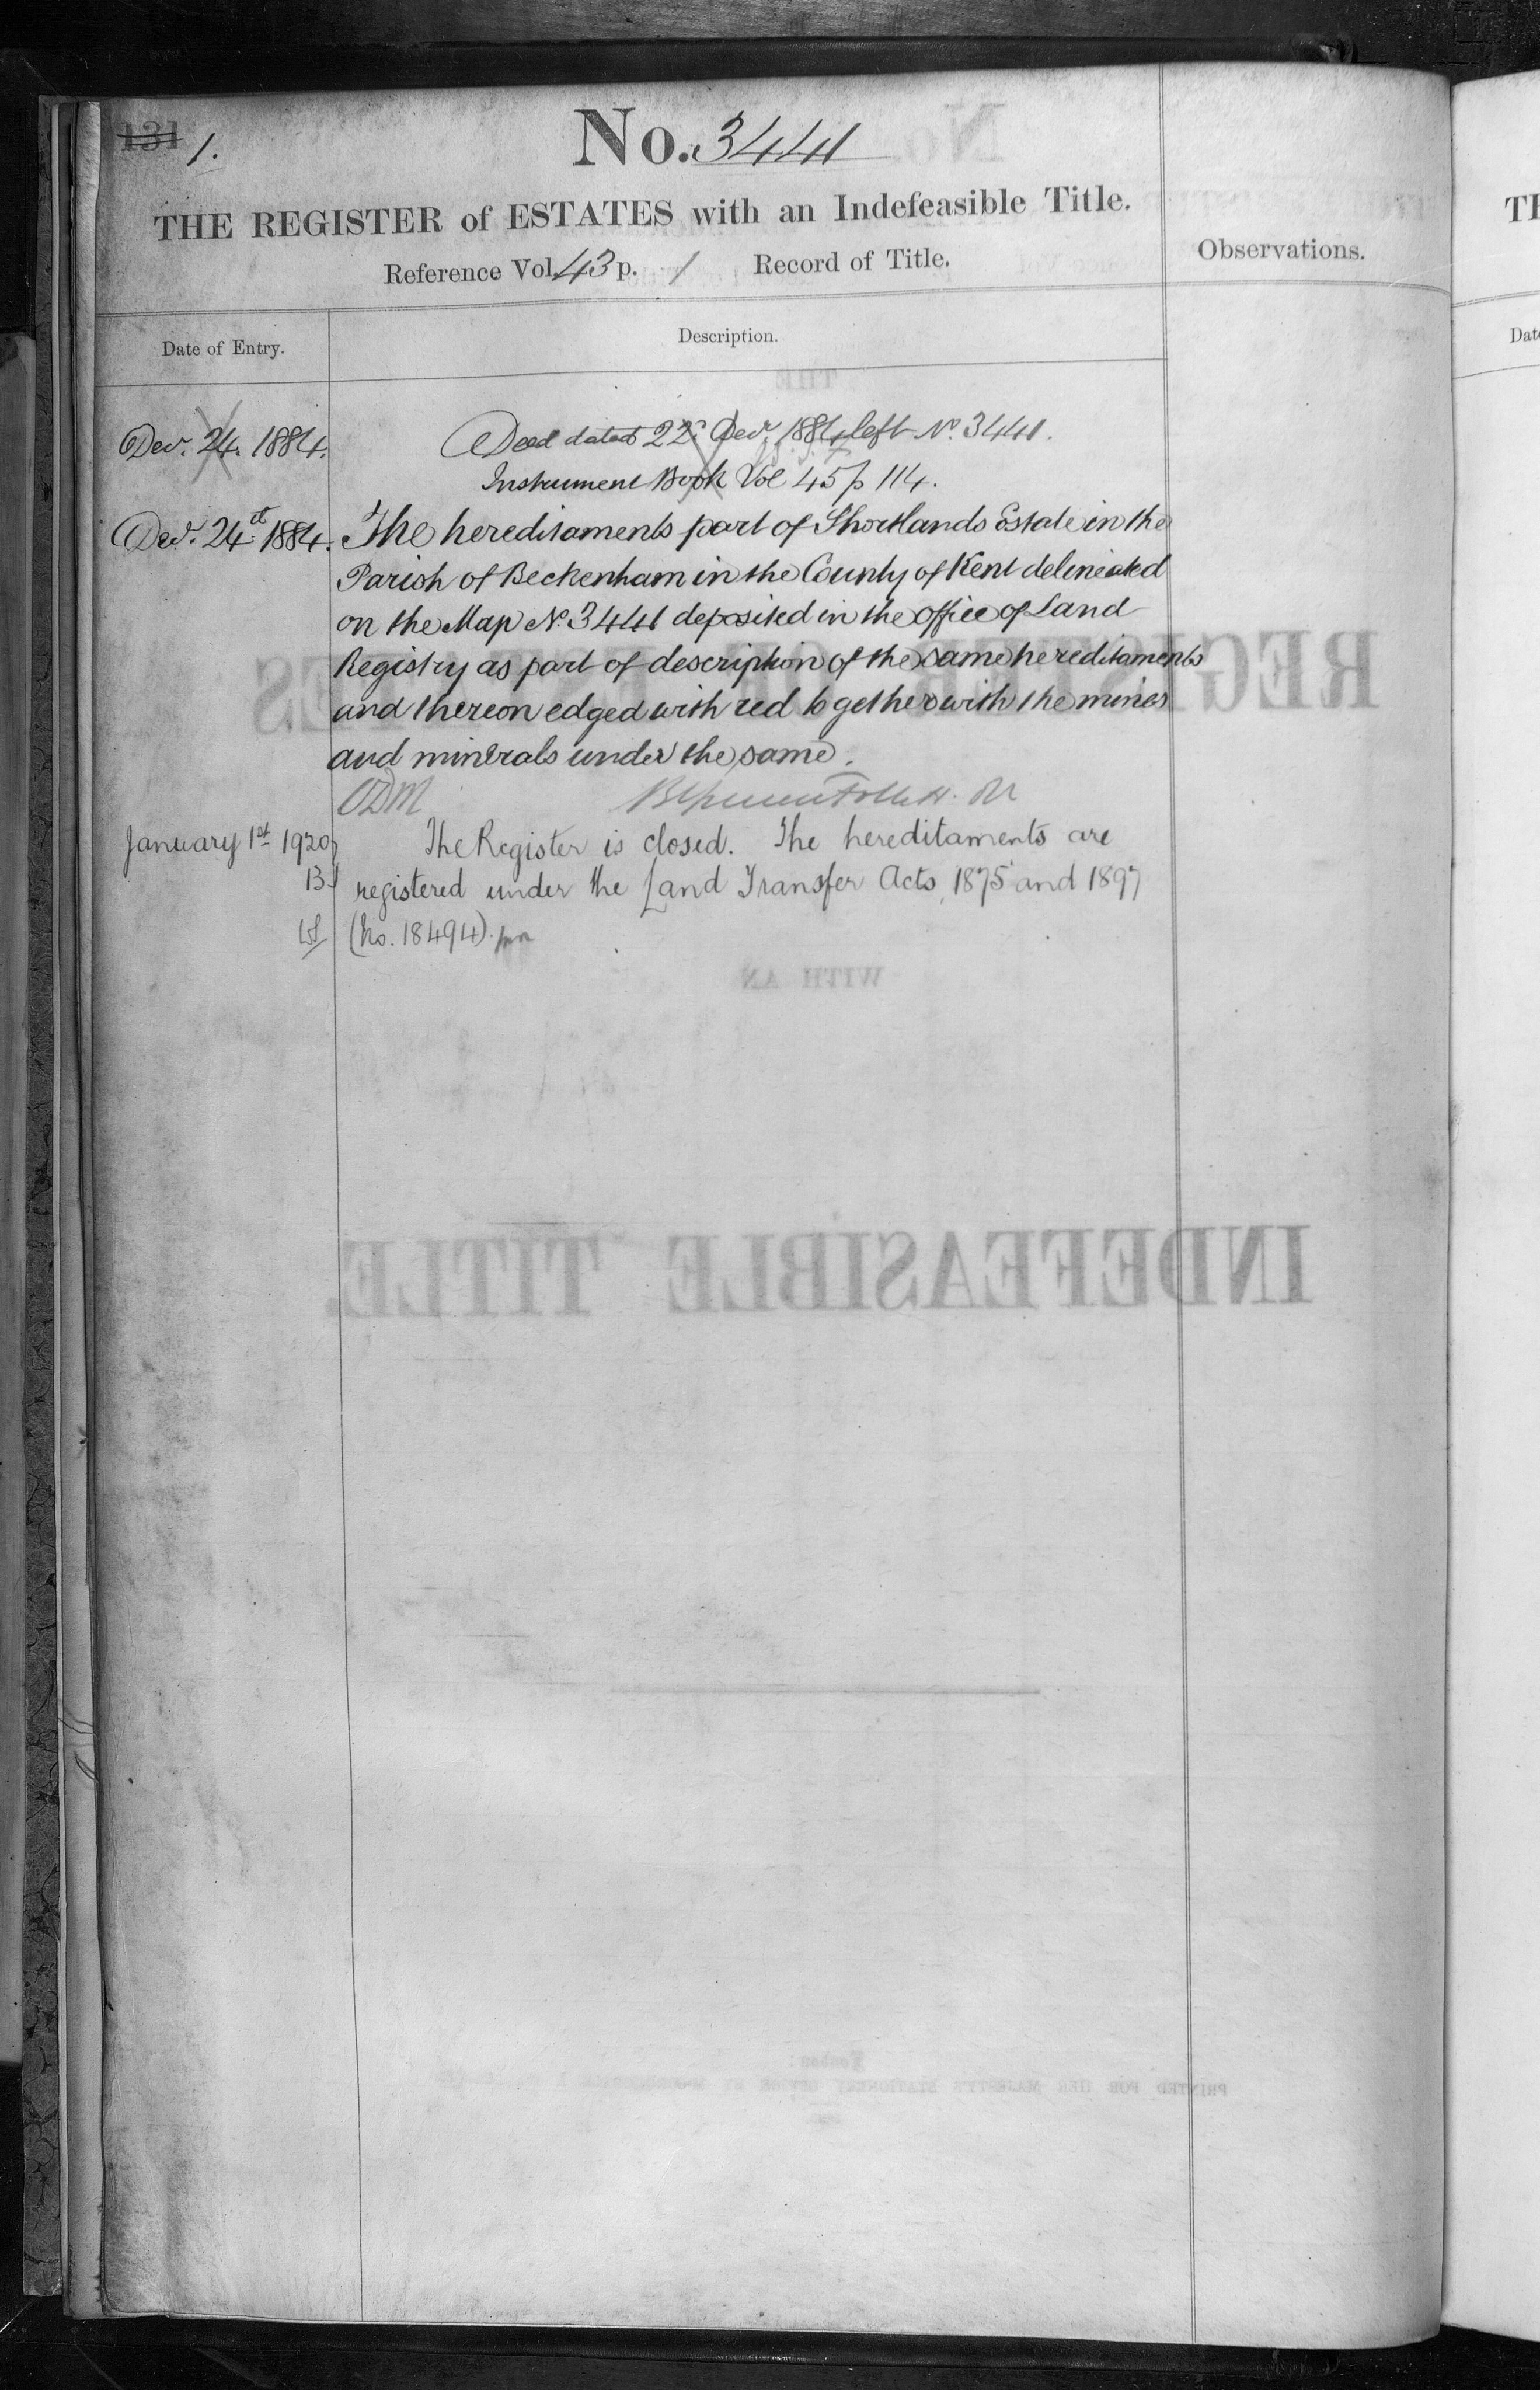 131 1.
No. 3441
THE REGISTER of ESTATES with an Indefeasible Title.
Reference Vol. 43 p. 1 Record of Title.
Observations.
Date of Entry.
Description.
Decr. 24. 1884.
Deed dated 22d Decr. 1884 left No. 3441.
Instrument Book Vol 45 p 114.
Decr. 24th 1884.
The hereditaments part of Shortlands Estate in the
Parish of Beckenham in the County of Kent delineated
on the Map No. 3441 deposited in the office of Land
Registry as part of description of the same hereditaments
and thereon edged with red together with the mines
and minerals under the same.
January 1st 1920
The Register is closed. The hereditaments are
registered under the Land Transfer Acts, 1875 and 1897
(No. 18494).
REGISTER ESTATES
WITH AN
INDEFEASIBLE TITLE.